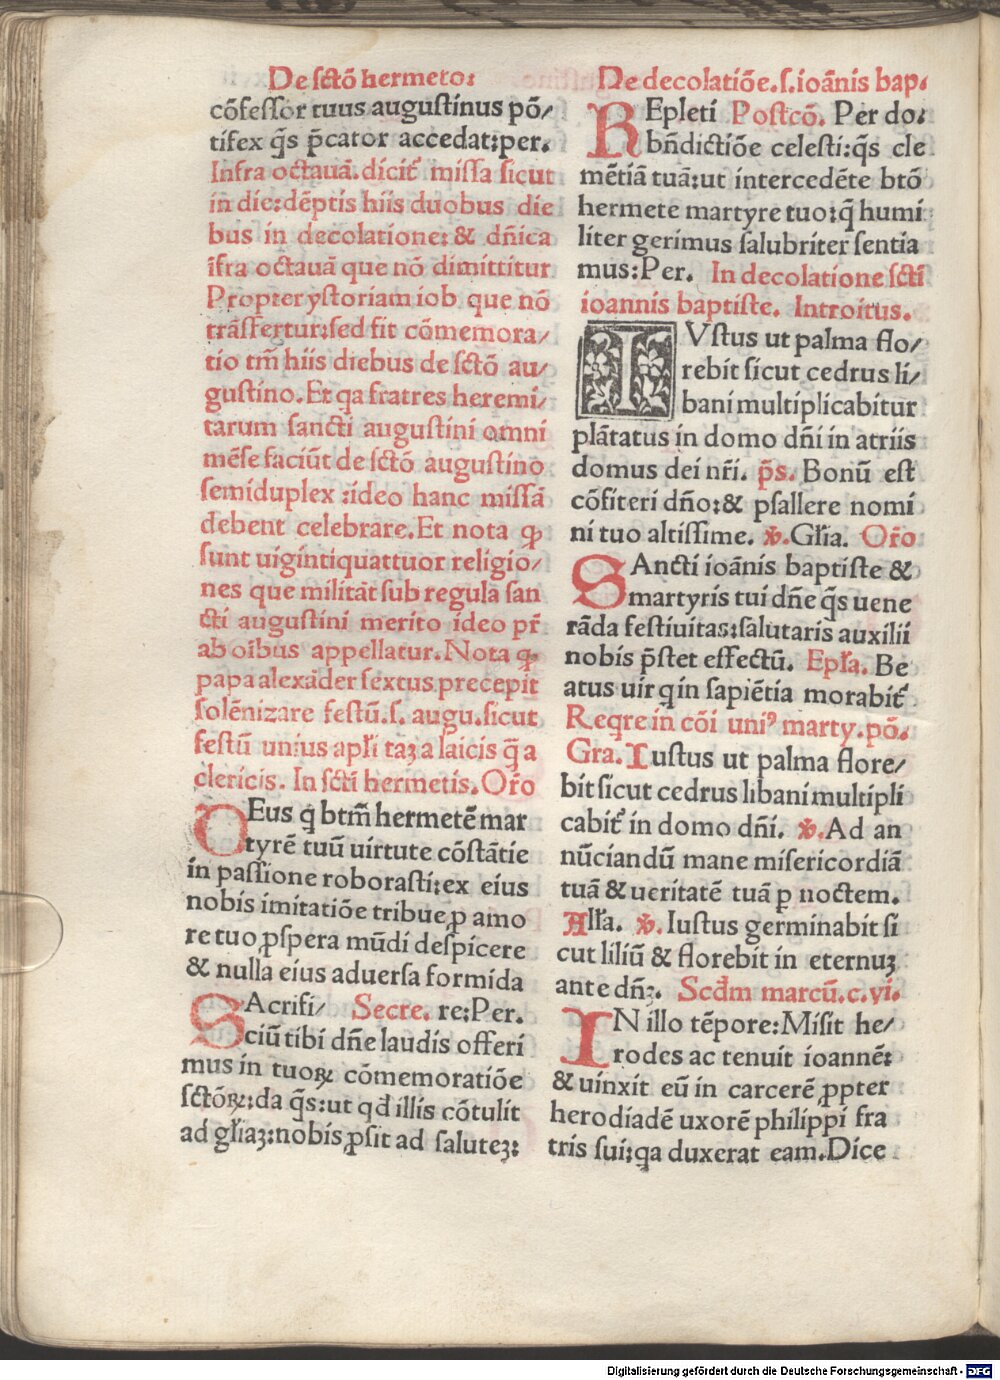 De sctō hermeto:
cōfessor tuus augustinus pō/
tifex q̄s p̄cator accedat:per.
Infra octauā.dicit᷑ missa sicut
in die:dēptis hiis duobus die
bus in decolatione: & dn̄ica
īfra octauā que nō dimittitur
Propter ystoriam iob que nō
trāsfertur:sed fit cōmemora/
tio tm̄ hiis diebus de sctō au/
gustino. Et qa fratres heremi/
tarum sancti augustini omni
mēse faciūt de sctō augustino
semiduplex :ideo hanc missā
debent celebrare. Et nota ꝙ
sunt uigintiquattuor religio/
nes que militāt sub regula san
cti augustini merito ideo pr̄
ab oībus appellatur. Nota ꝙ
papa alexāder sextus precepit
solēnizare festū.s. augu.sicut
festū unius apƚi taꝫ a laicis q̄ a
clericis. In sctī hermetis. Oro
DEus q̇ btm̄ hermetē mar
tyrē tuū uirtute cōstātie
in passione roborasti:ex eius
nobis imitatiōe tribue ꝓ amo
re tuo ꝓspera mūdi despicere
& nulla eius aduersa formida
SAcrifi/ Secre. re:Per.
ciū tibi dn̄e laudis offeri
mus in tuoꝝ cōmemoratiōe
sctōꝝ:da q̄s:ut qđ illis cōtulit
ad gƚiaꝫ:nobis ꝓsit ad saluteꝫ:
De decolatiōe.s.ioānis bap.
REpleti Postcō. Per do:
bn̄dictiōe celesti:q̄s cle
mētiā tuā:ut intercedēte btō
hermete martyre tuo:q̄ humi
liter gerimus salubriter sentia
mus:Per. In decolatione sctī
ioannis baptiste. Introitus.
IVstus ut palma flo/
rebit sicut cedrus li/
bani multiplicabitur
plātatus in domo dn̄i in atriis
domus dei nr̄i. p̄s. Bonū est
cōfiteri dn̄o:& psallere nomi
ni tuo altissime. ℣. Gƚia. Oro
SAncti ioānis baptiste &
martyris tui dn̄e q̄s uene
rāda festiuitas:salutaris auxilii
nobis p̄stet effectū. Epƚa. Be
atus uir q̇ in sapiētia morabit᷑
Reqre in cōi uniꝰ marty.pō.
Gra. Iustus ut palma flore/
bit sicut cedrus libani multipli
cabit᷑ in domo dn̄i. ℣. Ad an
nūciandū mane misericordiā
tuā & ueritatē tuā ꝑ noctem.
Alƚa. ℣. Iustus germinabit si
cut liliū & florebit in eternuꝫ
ante dn̄ꝫ. Scđm marcū.c.vi.
IN illo tēpore:Misit he/
rodes ac tenuit ioannē:
& uinxit eū in carcerē ꝓpter
herodiadē uxorē philippi fra
tris sui:qa duxerat eam.Dice
Digitalisierung gefördert durch die Deutsche Forschungsgemeinschaft - DFG